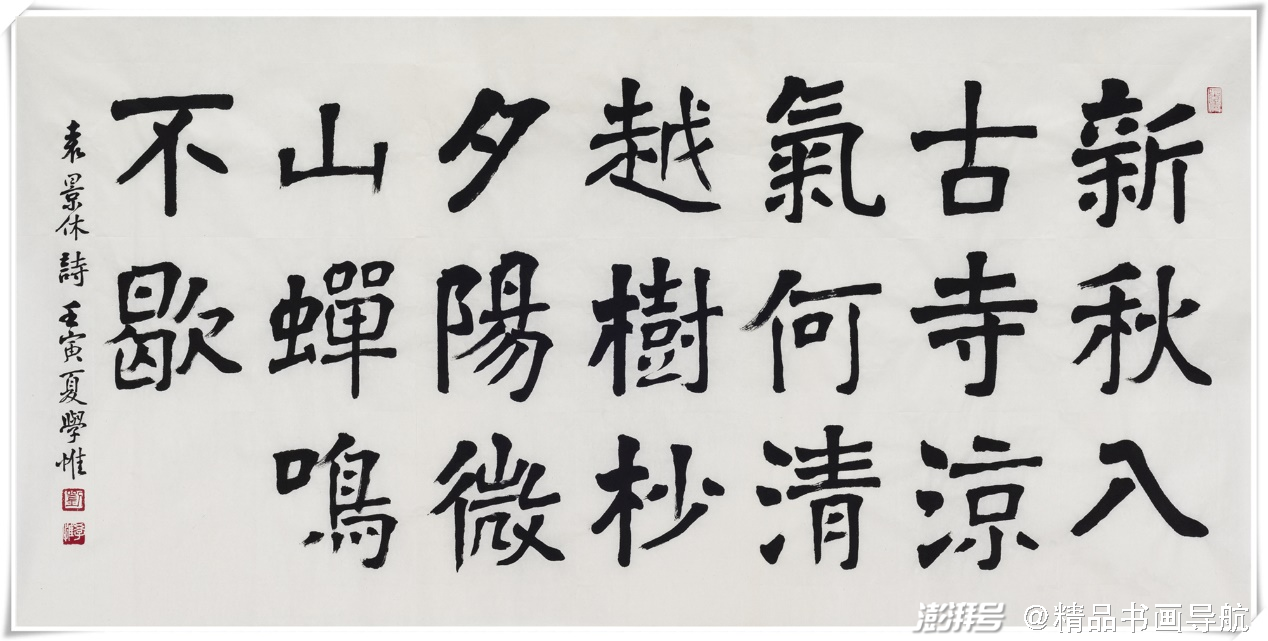 新秋入
古寺涼
氣何清
越樹杪
夕陽微
山蟬鳴
不歇
袁景休詩壬寅夏學惟
澎湃号 @精品书画导航